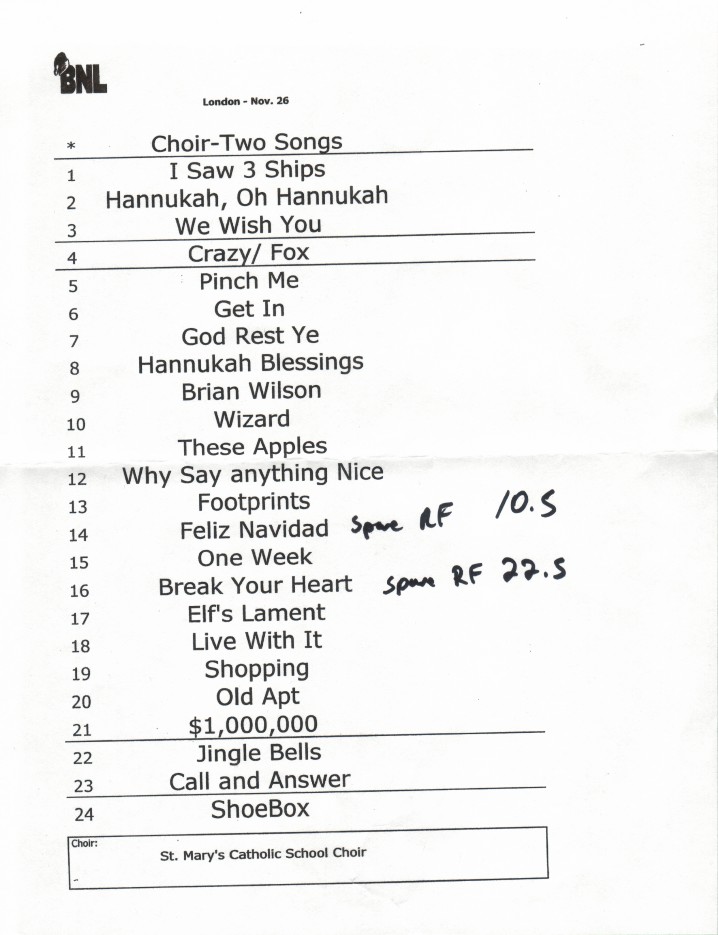 BNL
London - Nov. 26
* Choir-Two Songs
1 I Saw 3 Ships
2 Hannukah, Oh Hannukah
3 We Wish You
4 Crazy/ Fox
5 Pinch Me
6 Get In
7 God Rest Ye
8 Hannukah Blessings
9 Brian Wilson
10 Wizard
11 These Apples
12 Why Say anything Nice
13 Footprints
14 Feliz Navidad Spare RF 10.5
15 One Week
16 Break Your Heart Spare RF 22.5
17 Elf's Lament
18 Live With It
19 Shopping
20 Old Apt
21 $1,000,000
22 Jingle Bells
23 Call and Answer
24 ShoeBox
Choir:
St. Mary's Catholic School Choir